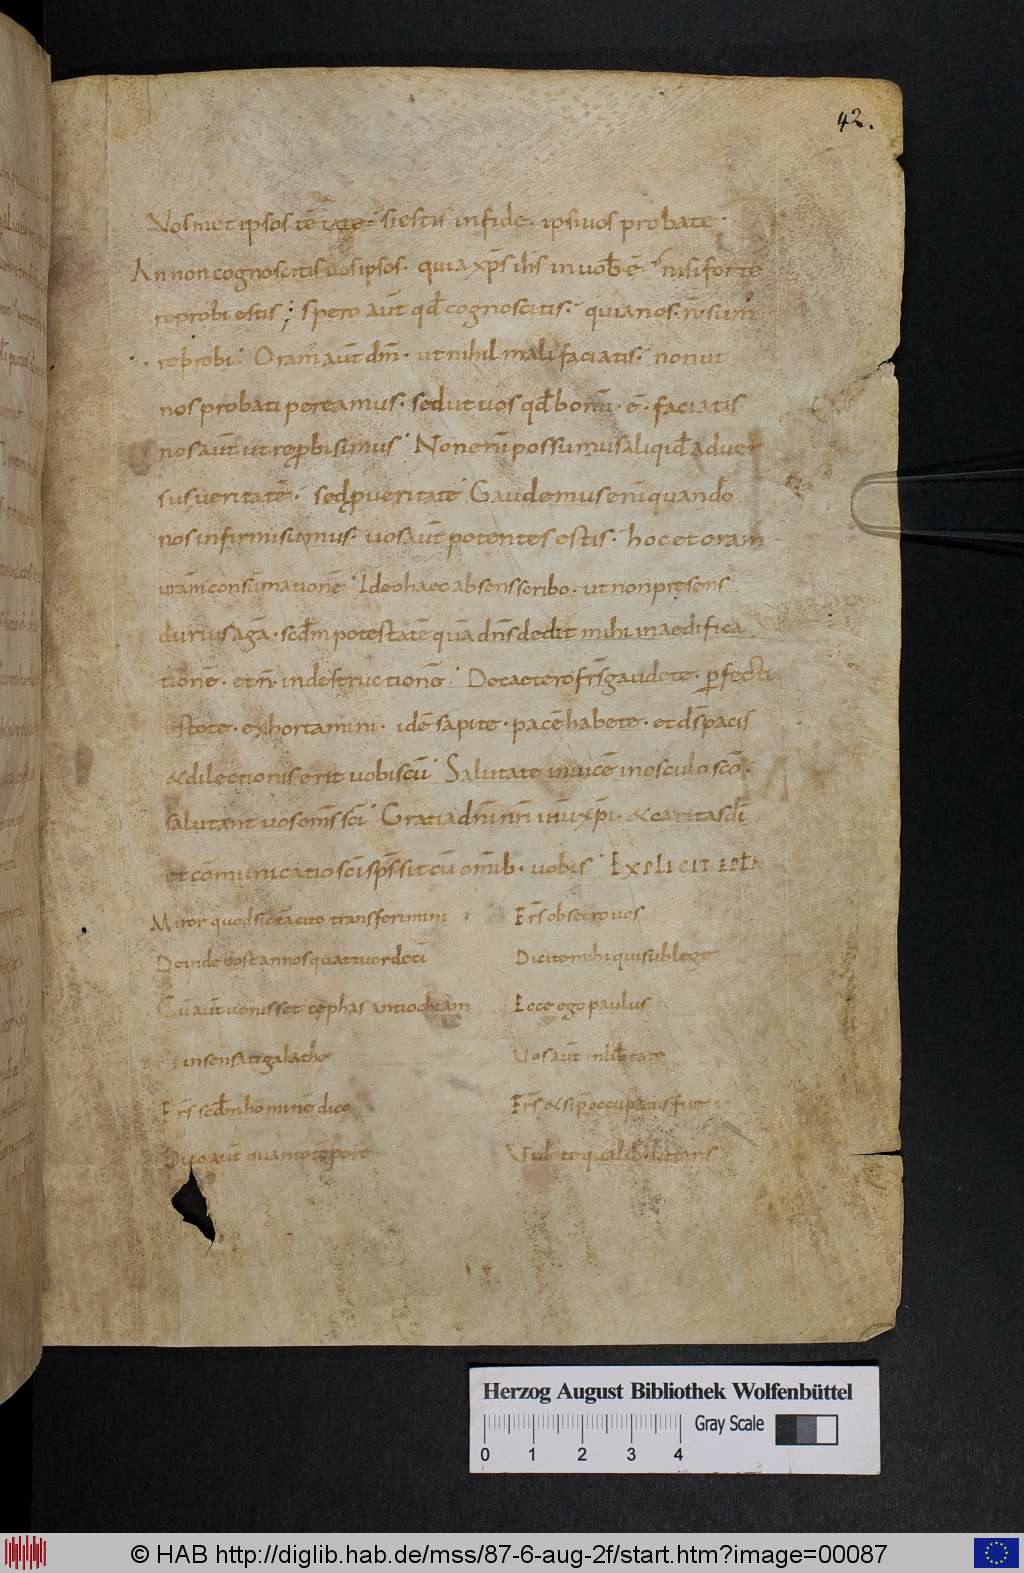 42.
Vosmet ipsos tēptate· siestis infide· ipsi uos probate·
An non cognoscitis uos ipsos· quia xp̄s ih̄s in uob̄ ē· nisi forte
reprobi estis; spero aut̄ qd̄ cognoscitis· quia nos· n̄ sum'
rebrobi· Oram' aut̄ dm̄· ut nihil mali faciatis· non ut
nos probati pereamus· sed ut uos qd̄ bonū ē· faciatis
nos aut̄ ut reprobi simus· Non enī possumus aliqid̄ aduer
sus ueritatē· sed p ueritate· Gaudemus enī quando
nos infirmi sumus· uos aut̄ potentes estis· hoc et oram'
urām consūmationē· Ideo haec absens scribo· ut non presens
durius agā· scd̄m potestatē quā dn̄s dedit mihi in aedifica
tionē· et n̄· in destructionē· De caetero frs̄ gaudete· perfecti
stote· exhortamini· idē sapite· pacē habete· et ds̄ pacis
& dilectionis erit uobiscū· Salutate inuicē in osculo scō·
salutant uos oms̄ scī· Gratia dn̄i nr̄i ihū xp̄i· & caritas dī
et cōmunicatio scī sps̄ sit cū omīb· uobis· EXPLICIT EPLA
Miror quod sic tā cito transferimini
Deinde post annos quattuor decī
Cū aut̄ uenisset cephas antiochiam
O insensati galathe
Frs̄ scd̄m hominē dico
Dico aut̄ quanto tēpore
Frs̄ obsecro uos
Dicite mihi qui sub lege
Ecce ego paulus
Uos aut̄ in lib̄tate
Frs̄ & si p̄occupatus fue
Videte qualib· litteris
Herzog August Bibliothek Wolfenbüttel
Gray Scale
0 1 2 3 4
© HAB http://diglib.hab.de/mss/87-6-aug-2f/start.htm?image=00087